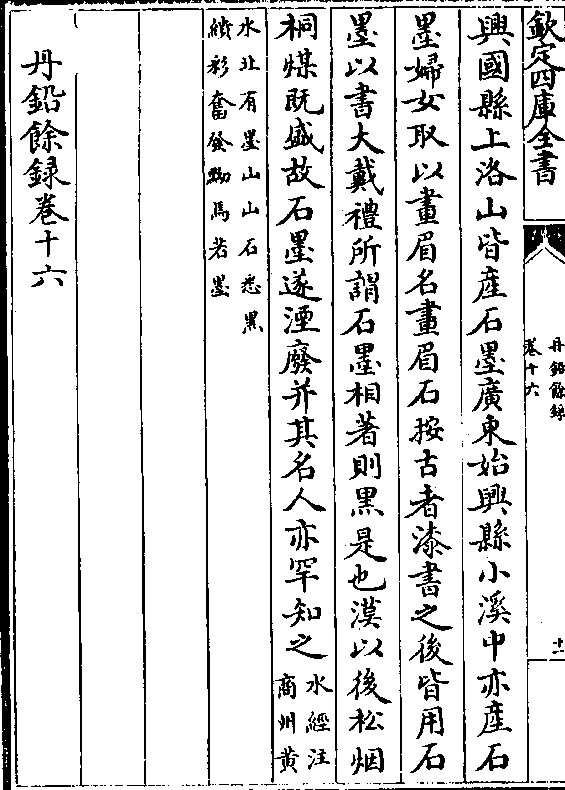 欽定四庫全書
丹鉛餘録
卷十六
興國縣上洛山皆産石墨廣東始興縣小溪中亦産石
墨婦女取以畫眉名畫眉石按古者漆書之後皆用石
墨以書大戴禮所謂石墨相著則黑是也漢以後松烟
桐煤既盛故石墨遂湮廢并其名人亦罕知之
水經注
商州黄
水北有墨山山石悉黑
繢彩奮發黝焉若墨
丹鉛餘録卷十六